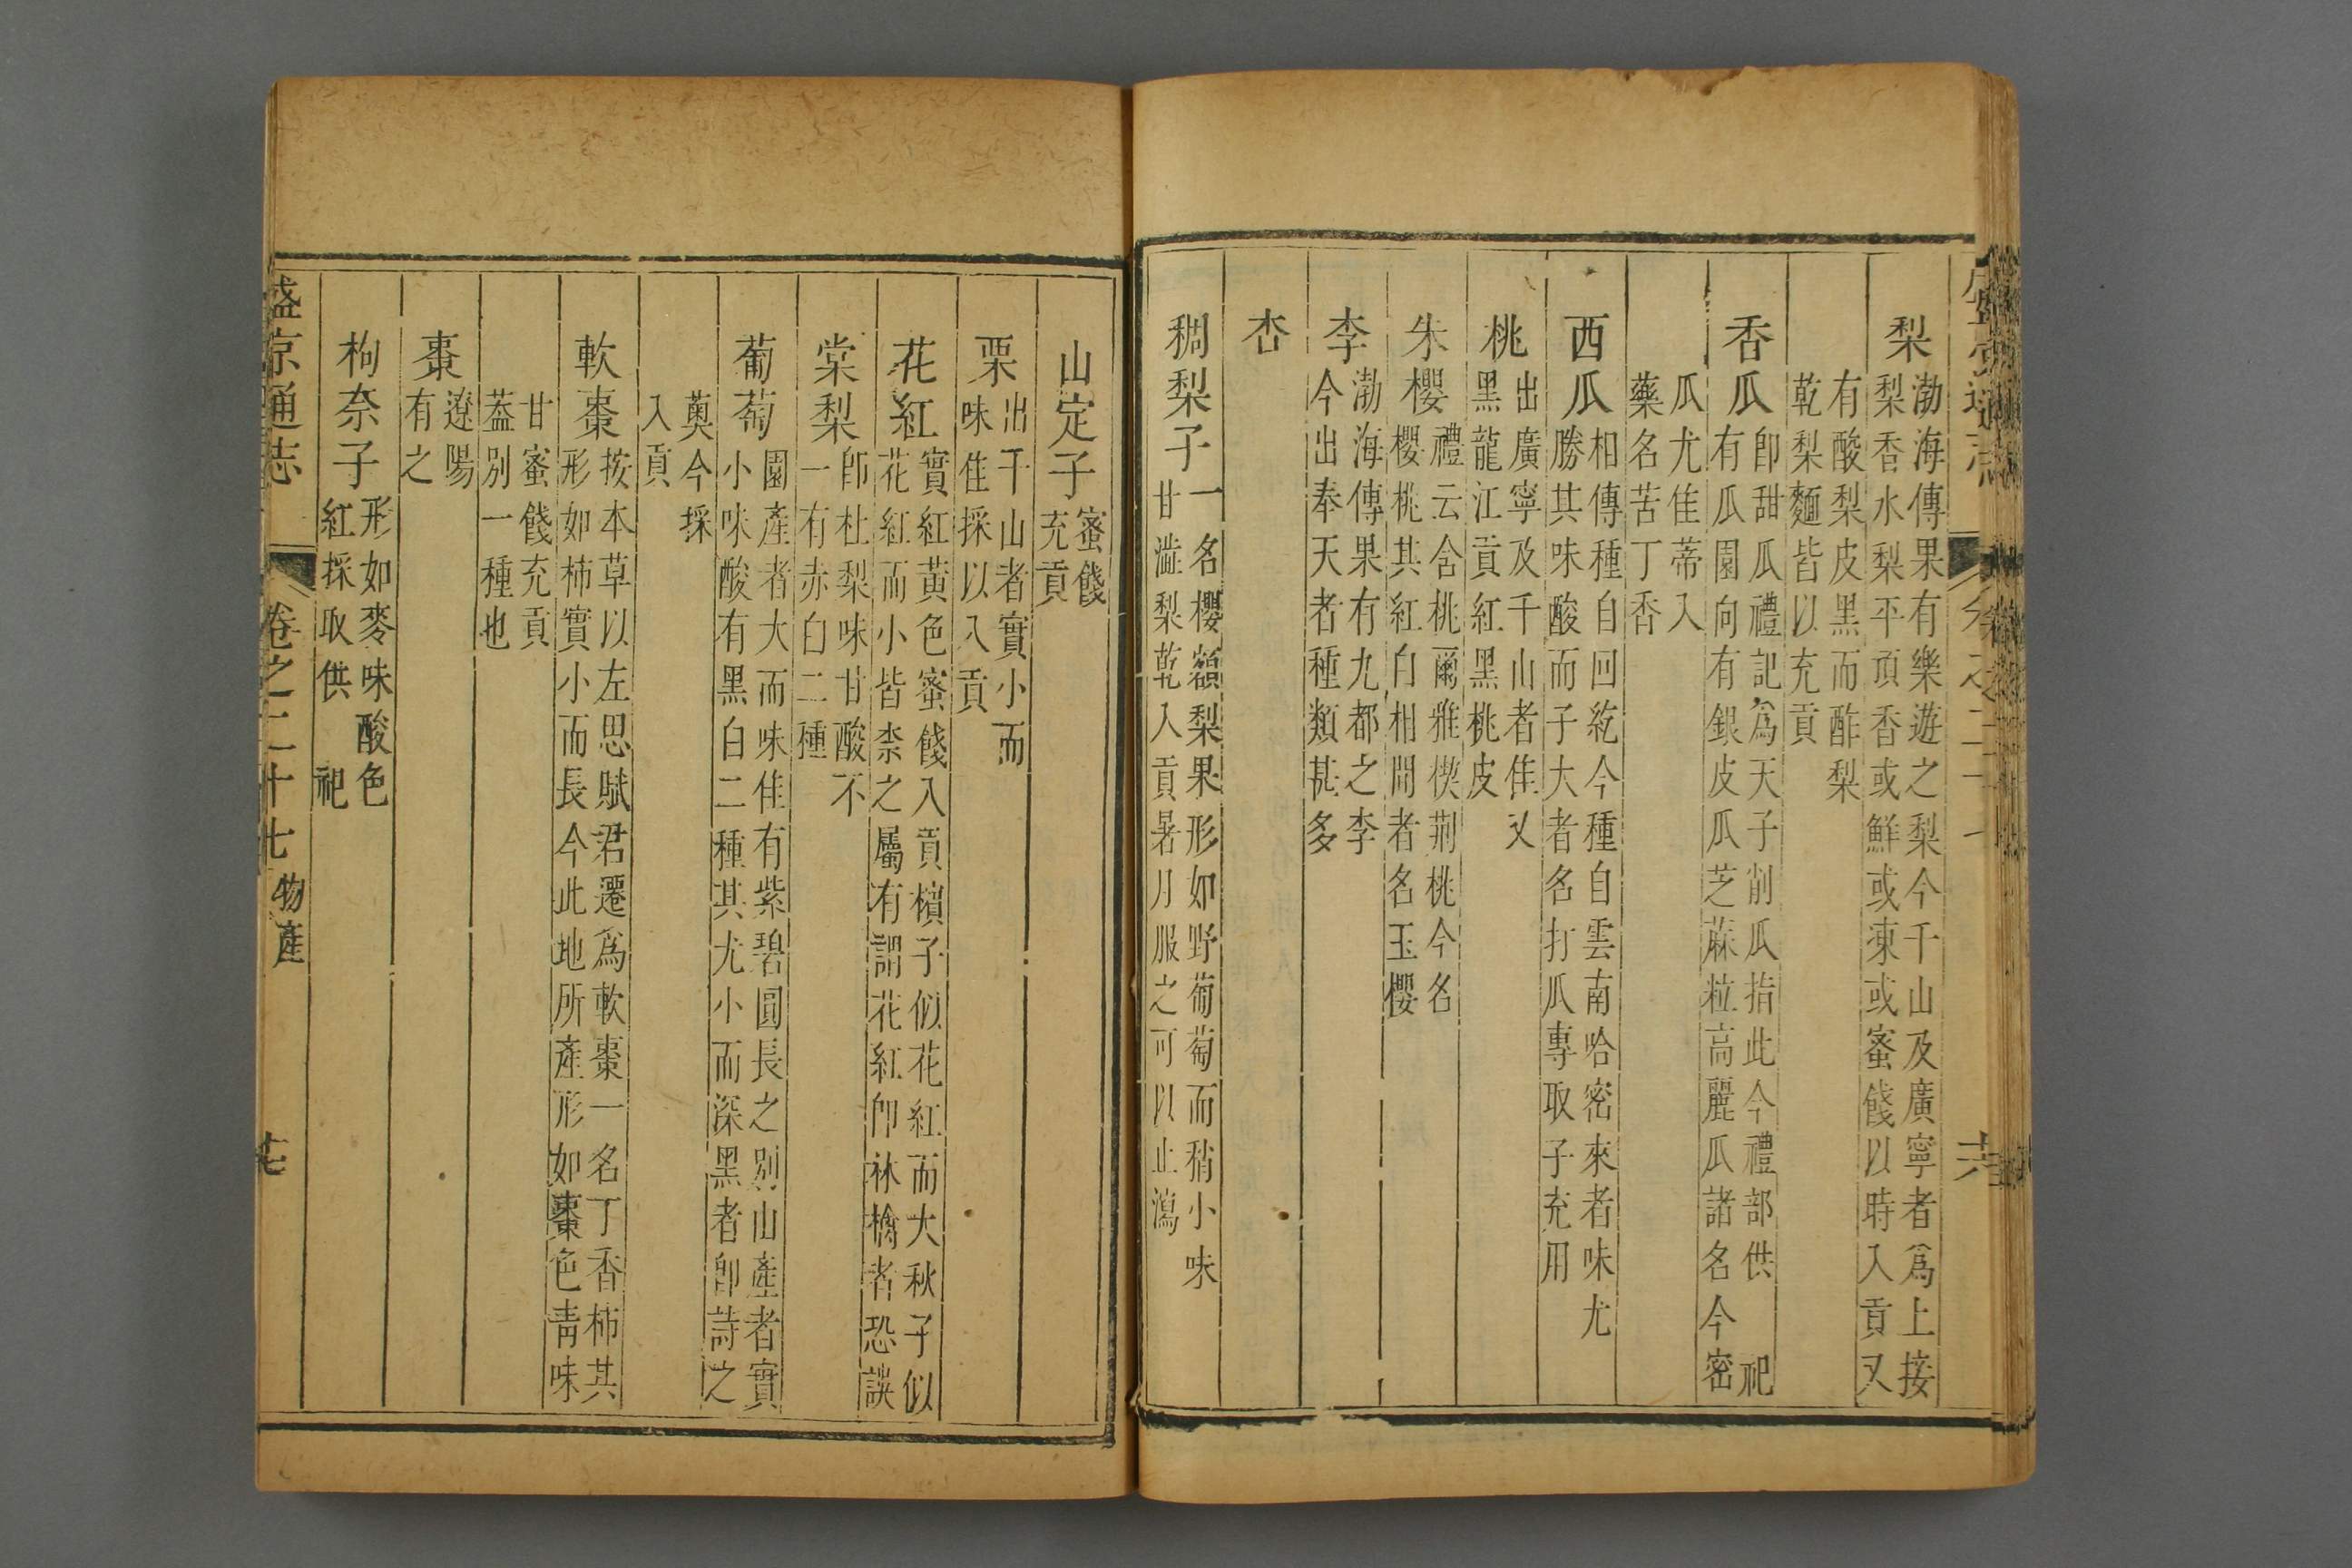 盛京通志
卷之二十七
六
梨
渤海傳果有樂遊之梨今千山及廣寧者爲上接
梨香水梨平頂香或鮮或凍或蜜餞以時入貢又
有酸梨皮黑而酢梨
乾梨麵皆以充貢
香瓜
卽甜瓜禮記爲天子削瓜指此今禮部供 祀
有瓜園向有銀皮瓜芝蔴粒高麗瓜諸名今密
瓜尤佳蒂入
藥名苦丁香
西瓜
相傳種自回紇今種自雲南哈密來者味尤
勝其味酸而子大者名打瓜專取子充用
桃
出廣寧及千山者佳又
黑龍江貢紅黑桃皮
朱櫻
禮云含桃爾雅楔荆桃今名
櫻桃其紅白相間者名玉櫻
李
渤海傳果有九都之李
今出奉天者種類甚多
杏
稠梨子
一名櫻額梨果形如野葡萄而稍小味
甘澁梨乾入貢暑月服之可以止瀉
山定子
蜜餞
充貢
栗
出千山者實小而
味佳採以入貢
花紅
實紅黃色蜜餞入貢檳子似花紅而大秋子似
花紅而小皆柰之屬有謂花紅卽林檎者恐誤
棠梨
卽杜梨味甘酸不
一有赤白二種
葡萄
園產者大而味佳有紫碧圓長之別山產者實
小味酸有黑白二種其尤小而深黑者卽詩之
薁今採
入貢
軟棗
按本草以左思賦君遷爲軟棗一名丁香柿其
形如柿實小而長今此地所產形如棗色靑味
甘蜜餞充貢
葢別一種也
棗
遼陽
有之
枸奈子
形如麥味酸色
紅採取供 祀
盛京通志
卷之二十七
物產
七